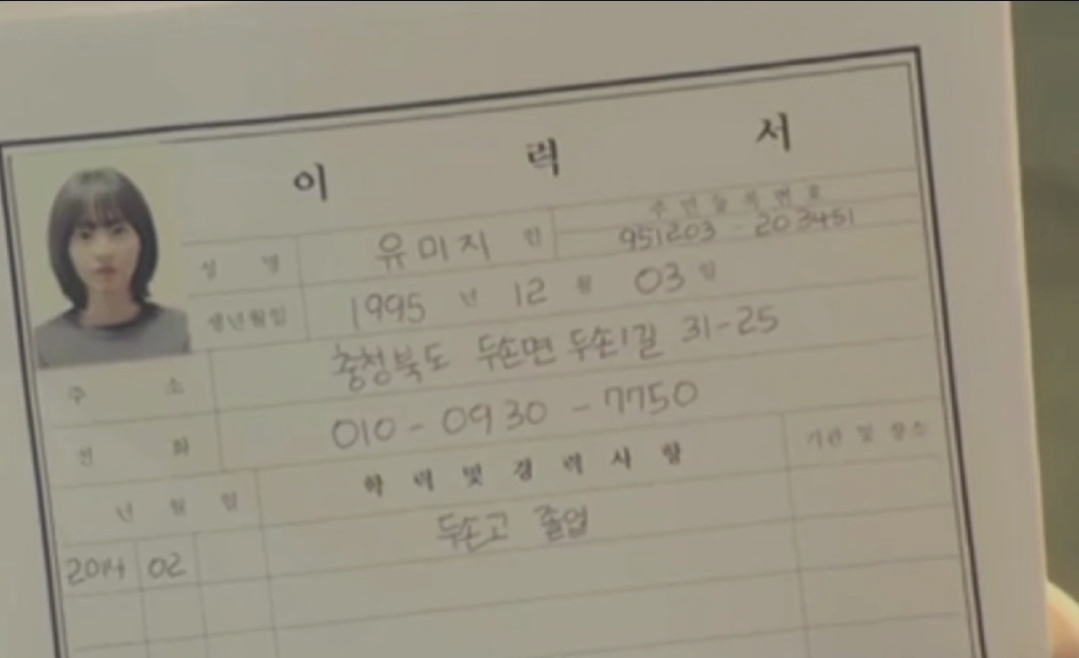 이 력 서
주민등록번호
성 명 유미지 인 951203 - 203451
생년월일 1995 년 12 월 03 일
주 소 충청북도 두손면 두손1길 31-25
전 화 010 - 0930 - 7750
년 월 일 학 력 및 경 력 사 항 기관 및 장소
2014 02 두손고 졸업